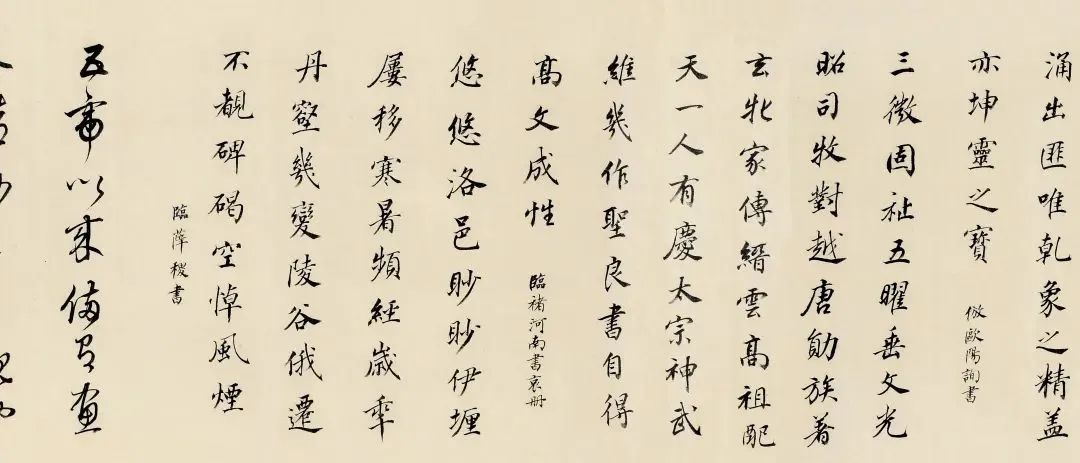 涌出匪唯乾象之精盖
亦坤靈之寶
倣歐陽詢書
三微固祉五曜垂文光
昭司牧對越唐勛族著
玄牝家傳縉雲高祖配
天一人有慶太宗神武
維幾作聖良書自得
高文成性
臨褚河南書哀册
悠悠洛邑眇眇伊壥
屢移寒暑頻經歲秊
丹壑幾變陵谷俄遷
不覩碑碣空悼風煙
臨薛稷書
五帝以来備有畫